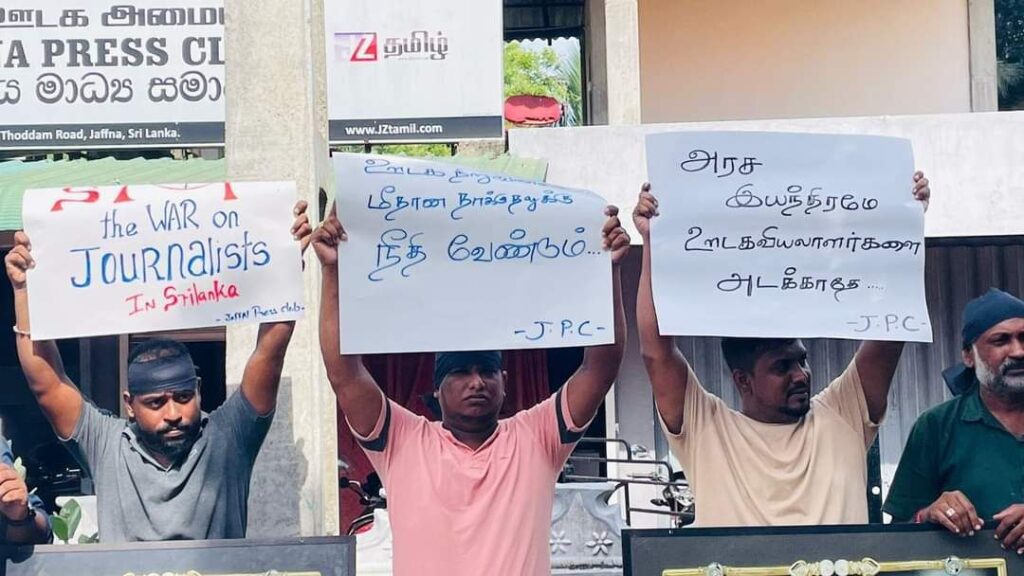 ஊடக அமை
A PRESS CL
ය මාධ්‍ය සමා
Thoddam Road, Jaffna, Sri Lanka.
தமிழ்
www.JZtamil.com
STOP
the WAR on
Journalists
In Srilanka
- Jaffna Press club-
ஊடக
மீதான தாக்குதலுக்கு
நீதி வேண்டும்...
-J.P.C-
அரச
இயந்திரமே
ஊடகவியலாளர்களை
அடக்காதே....
-J.P.C-